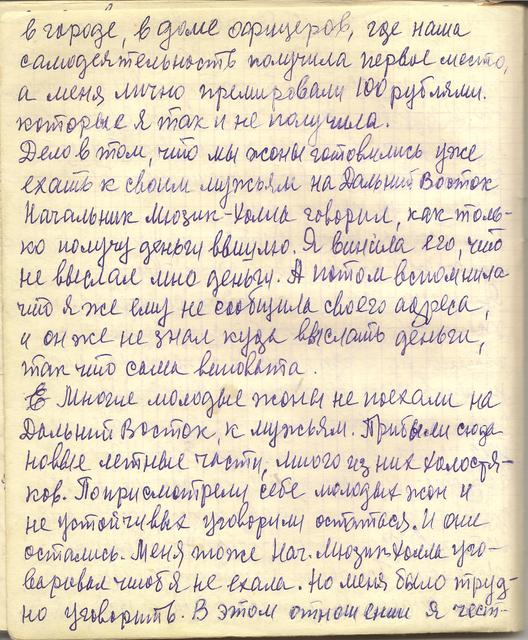 в городе, в доме офицеров, где наша
самодеятельность получила первое место,
а меня лично премировали 100 рублями.
которые я так и не получила.
Дело в том, что мы жоны готовились уже
ехать к своим мужьям на Дальний Восток
Начальник Мюзик-Холла говорил, как толь-
ко получу деньги вышлю. Я винила его, что
не выслал мне деньги. А потом вспомнила
что я же ему не сообщила своего адреса,
и он же не знал куда выслать деньги,
так что сама виновата.
Многие молодые жоны не поехали на
Дальний Восток, к мужьям. Прибыли сюда
новые летные части, много из них холостя-
ков. Поприсмотрели себе молодых жон и
не устойчивых уговорили остаться. И они
остались. Меня тоже Нач. Мюзик-Холла уго-
варивал чтоб я не ехала. Но меня было труд-
но уговорить. В этом отношении я чест-